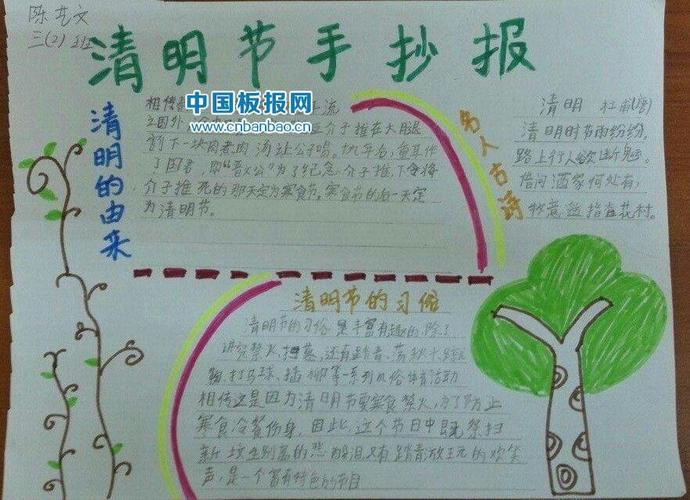 陈艺文
三(2)班
清明节手抄报
中国板报网
www.cnbanbao.cn
清明的由来
相传 流
介子推在大腿
了国君,即"晋文公"为了纪念介子推,下令将
介子推死的那天定为寒食节。寒食节的后一天定
为清明节。
名人古诗
清明 杜甫(唐)
清明时节雨纷纷,
路上行人欲断魂。
借问酒家何处有,
牧童遥指杏花村。
清明节的习俗
清明节的习俗是丰富有趣的,除了
讲究禁火、扫墓,还有踏青、荡秋千、蹴
鞠、打马球、插柳等一系列风俗体育活动
相传这是因为清明节要寒食禁火,为了防止
寒食冷餐伤身,因此,这个节日中既祭扫
新坟生别离的悲酸泪,又有踏青放玩的欢笑
声,是一个富有特色的节日